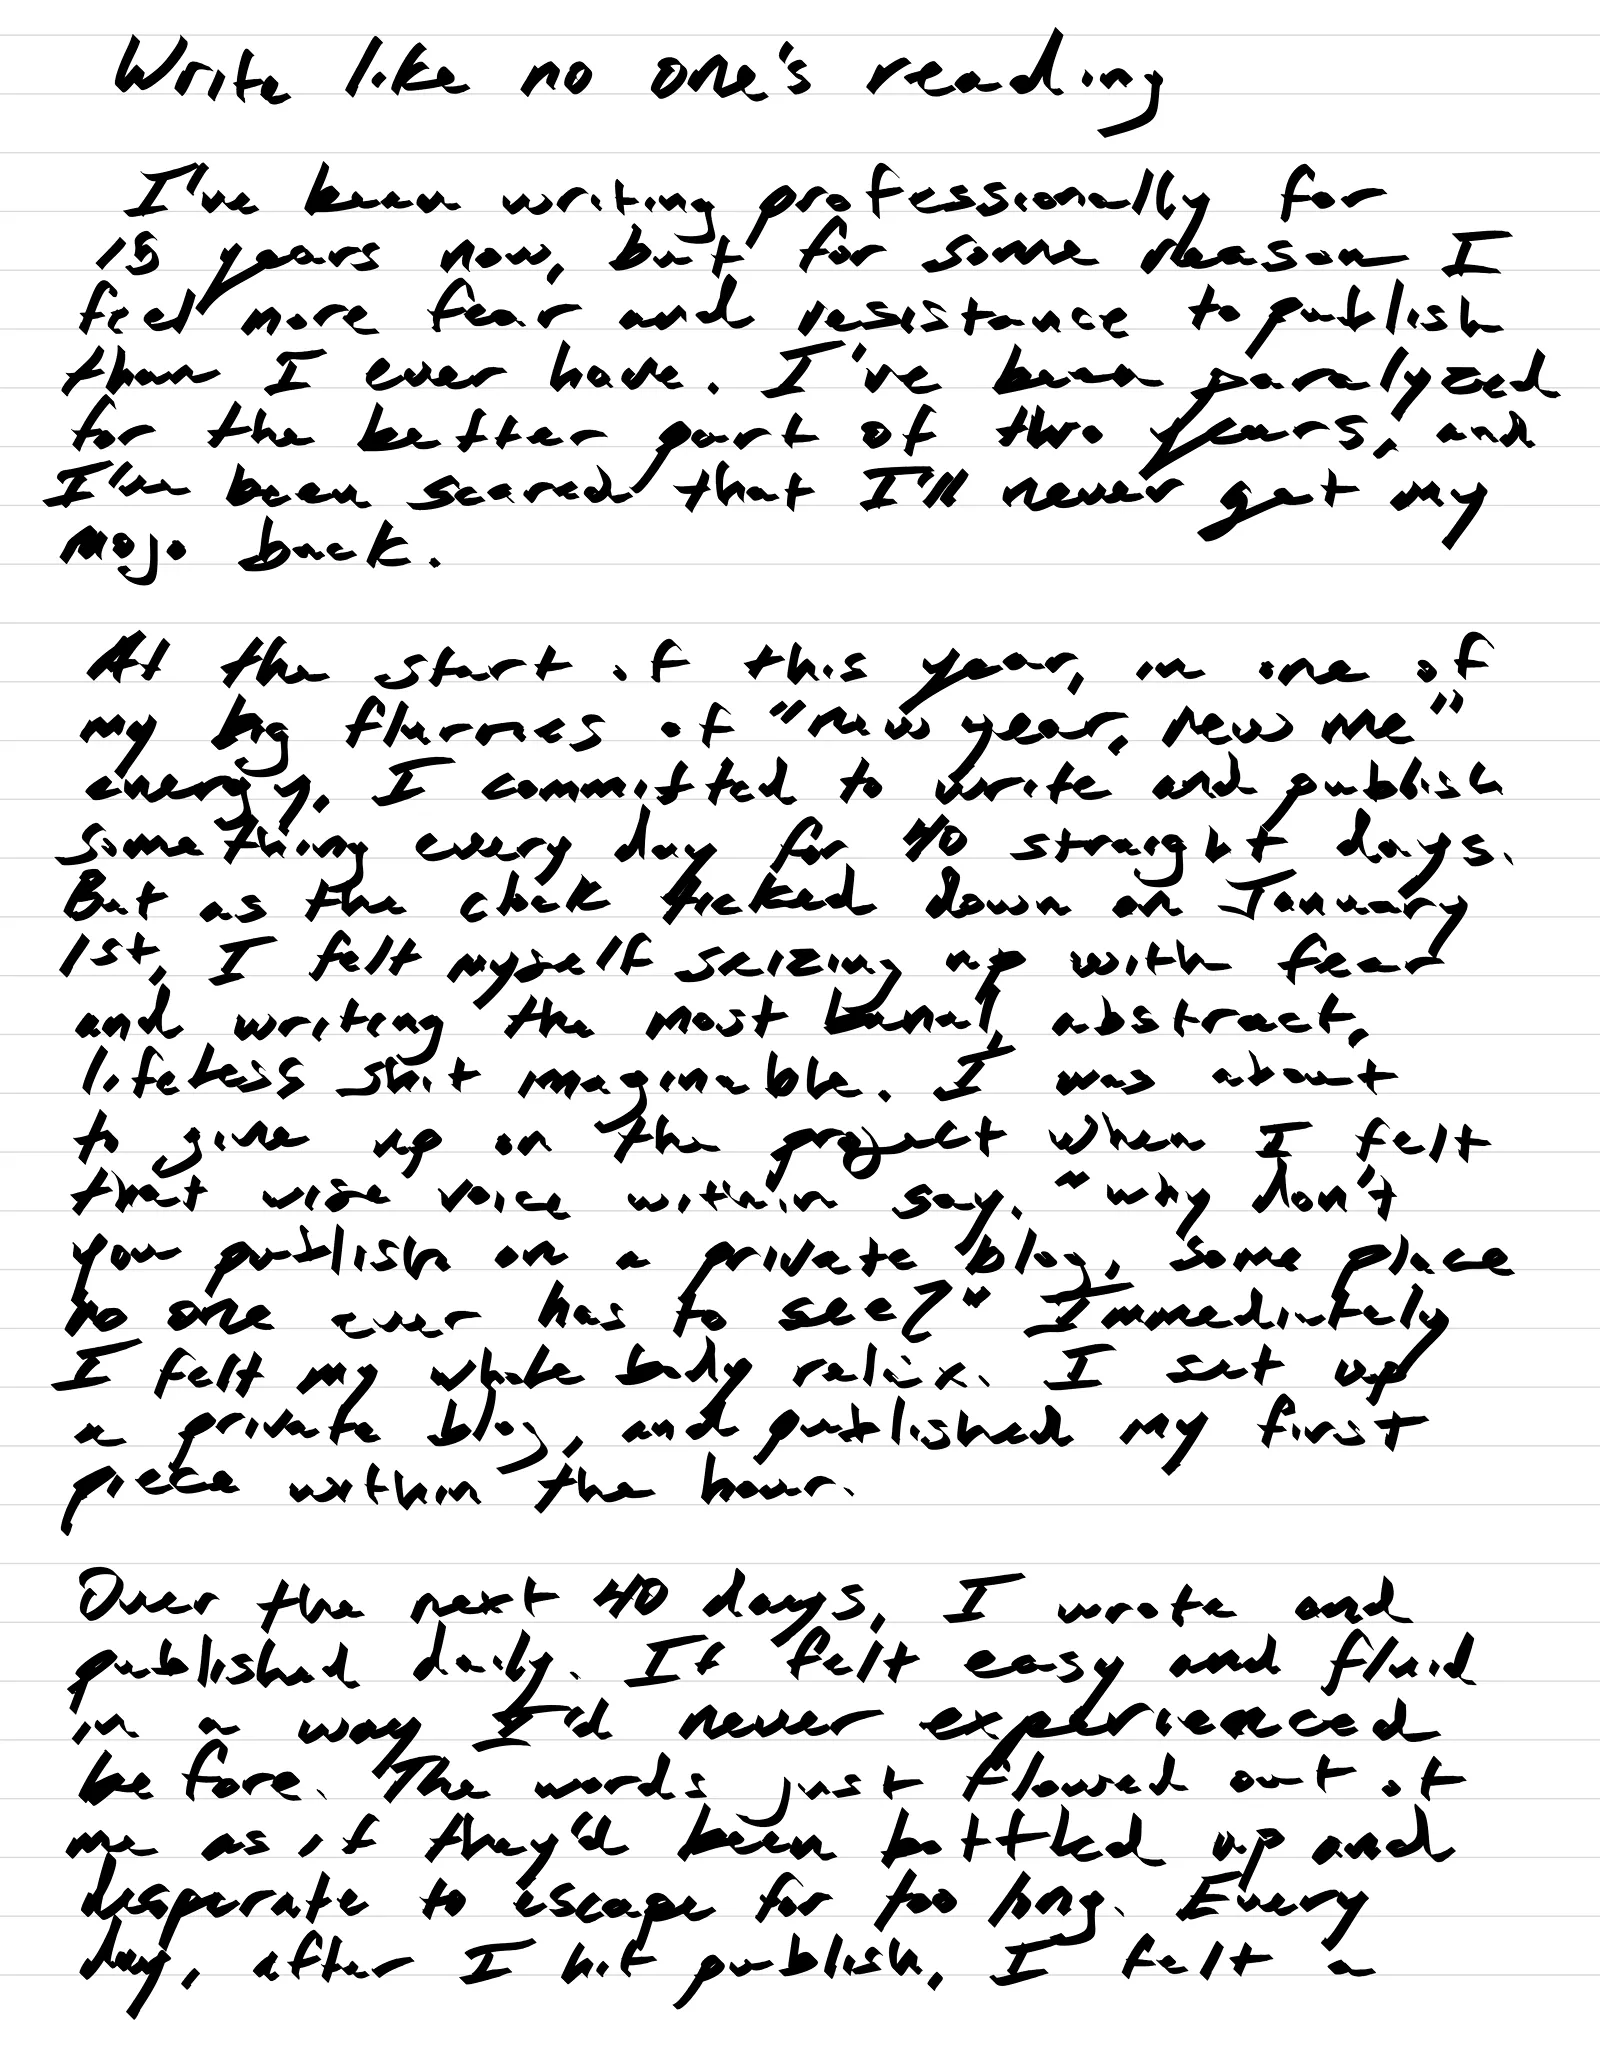 Write like no one's reading
I've been writing professionally for
15 years now, but for some reason I
feel more fear and resistance to publish
than I ever have. I've been paralyzed
for the better part of two years, and
I've been scared that I'll never get my
mojo back.
At the start of this year, in one of
my big flurries of "new year, new me"
energy, I committed to write and publish
something every day for 40 straight days.
But as the clock ticked down on January
1st, I felt myself seizing up with fear
and writing the most banal, abstract,
lifeless shit imaginable. I was about
to give up on the project when I felt
that wise voice within say, "why don't
you publish on a private blog, some place
no one ever has to see?" Immediately
I felt my whole body relax. I set up
a private blog, and published my first
piece within the hour.
Over the next 40 days, I wrote and
published daily. It felt easy and fluid
in a way I'd never experienced
before. The words just flowed out of
me as if they'd been bottled up and
desperate to escape for too long. Every
day, after I hit publish, I felt a